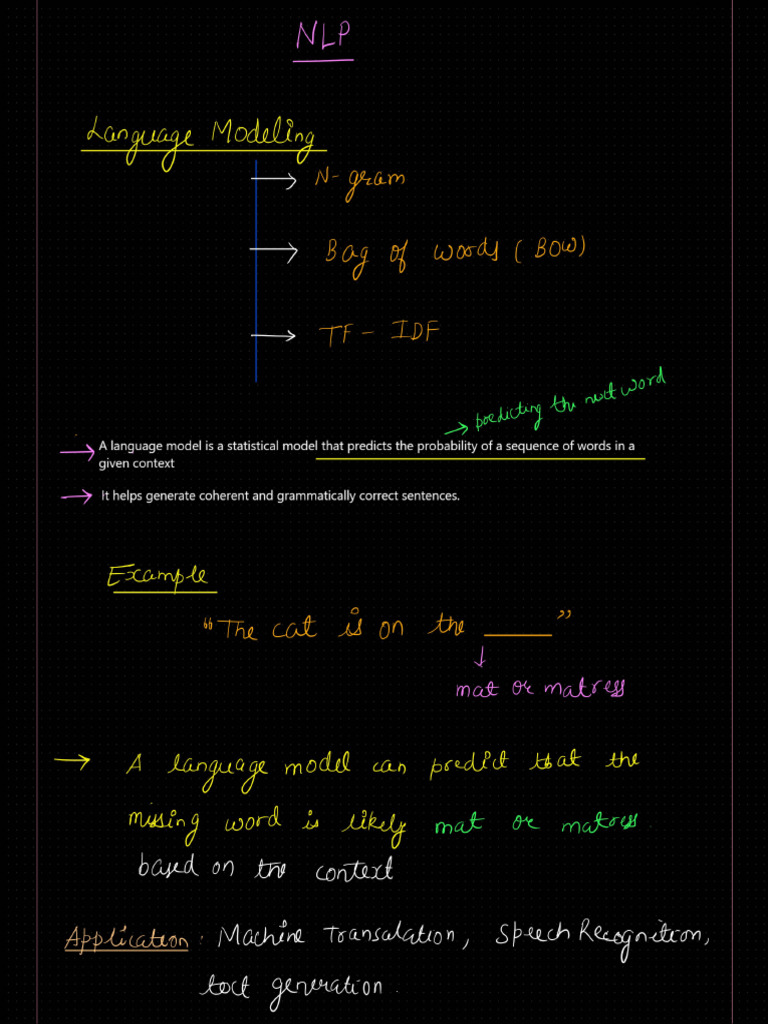 NLP
Language Modeling
N-gram
Bag of words (BOW)
TF-IDF
→ predicting the next word
→ A language model is a statistical model that predicts the probability of a sequence of words in a
given context
→ It helps generate coherent and grammatically correct sentences.
Example
"The cat is on the ____"
mat or matress
→ A language model can predict that the
missing word is likely mat or matress
based on the context
Application: Machine Transalation, Speech Recognition,
text generation.